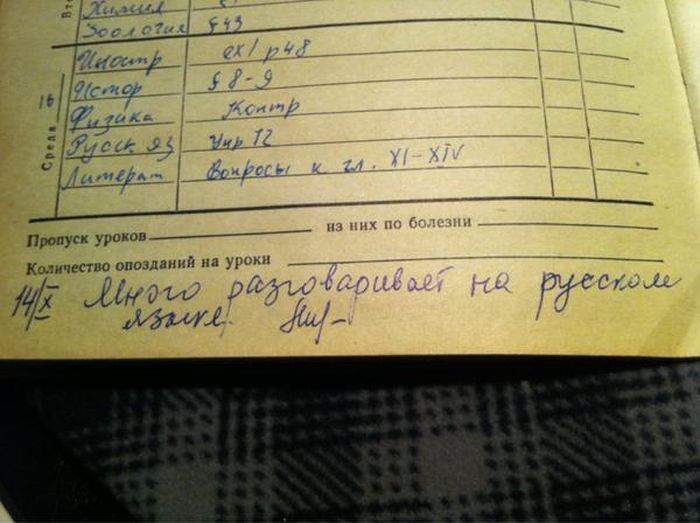 Химия
Зоология §43
Среда 16
Иностр ex1 p48
Истор § 8-9
Физика Контр
Русск яз Упр 72
Литерат Вопросы к гл. XI-XIV
Пропуск уроков из них по болезни
Количество опозданий на уроки
14/X Много разговаривает на русском
языке.